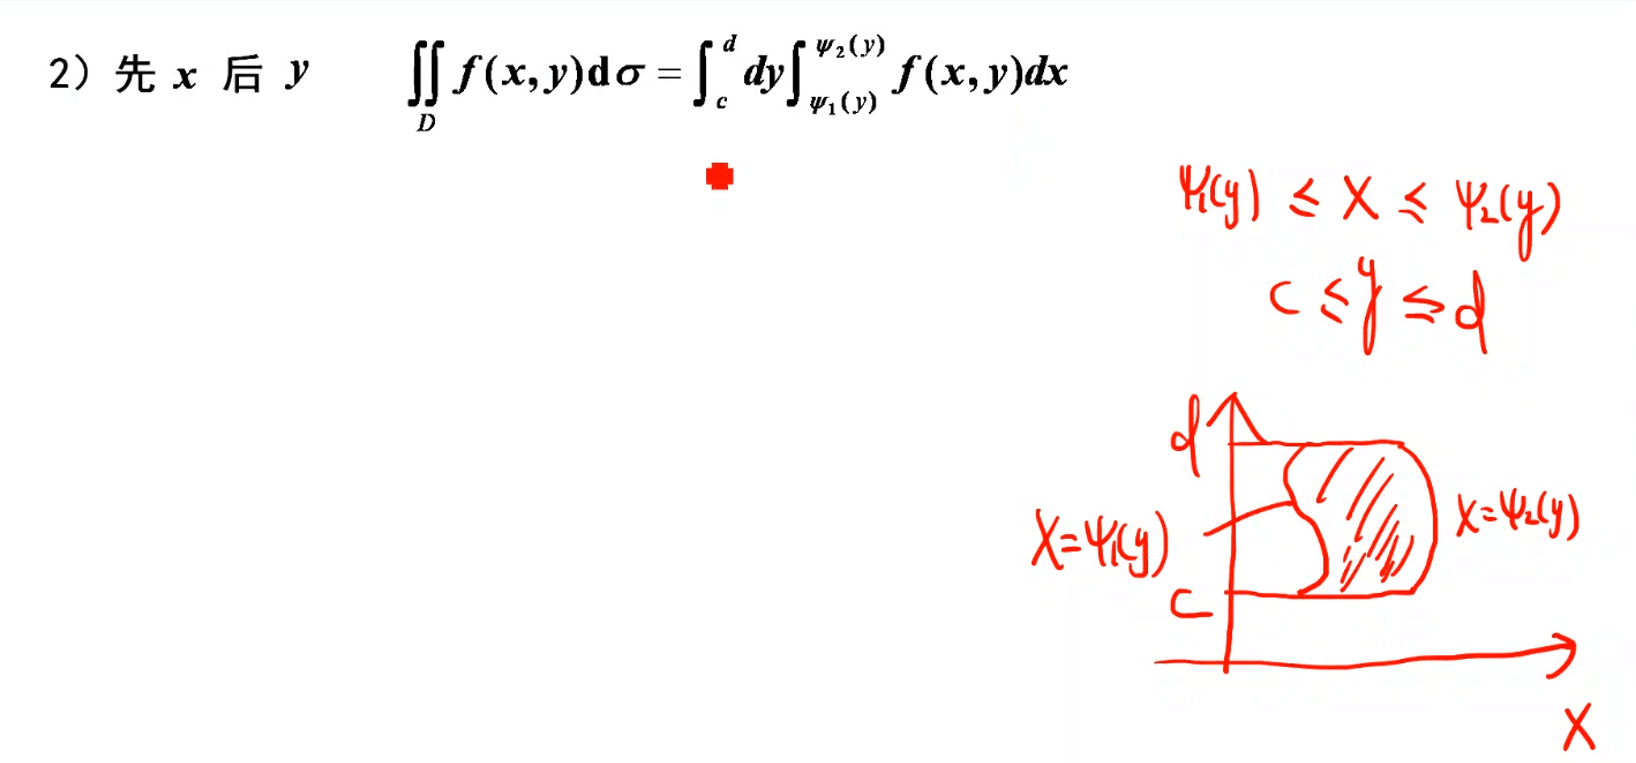 2）先 x 后 y  ∬_D f(x,y)dσ = ∫_c^d dy∫_{ψ₁(y)}^{ψ₂(y)} f(x,y)dx
ψ₁(y) ≤ x ≤ ψ₂(y)
c ≤ y ≤ d
d
x=ψ₁(y)
x=ψ₂(y)
c
x